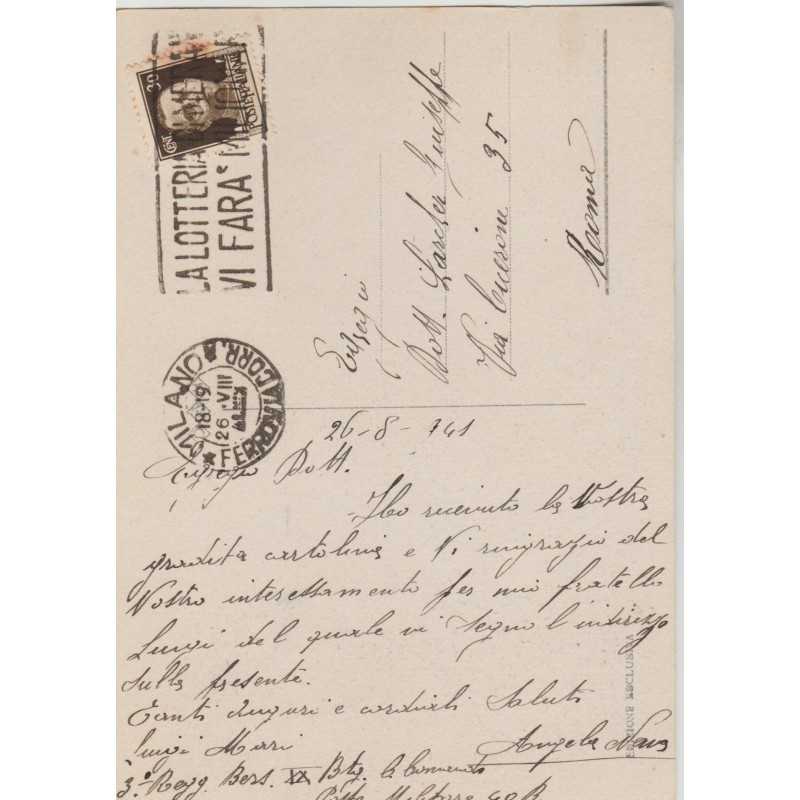 CENT. 30
POSTE ITALIANE
LA LOTTERIA
VI FARA'
MILANO
18-19
26 VIII
FERROVIA CORR.
Egregio
Dott. Larcher Giuseppe
Via Cicerone 35
Roma
26-8-941
Egregio Dott.
Ho ricevuto la Vostra
gradita cartolina e Vi ringrazio del
Vostro interessamento per mio fratello
Luigi del quale vi segno l'indirizzo
sulla presente.
Tanti Auguri e cordiali Saluti
Angela
Luigi
3º Regg. Bers. XX Btg. Comando
Posta Militare 40R
EDIZIONE ESCLUSIVA